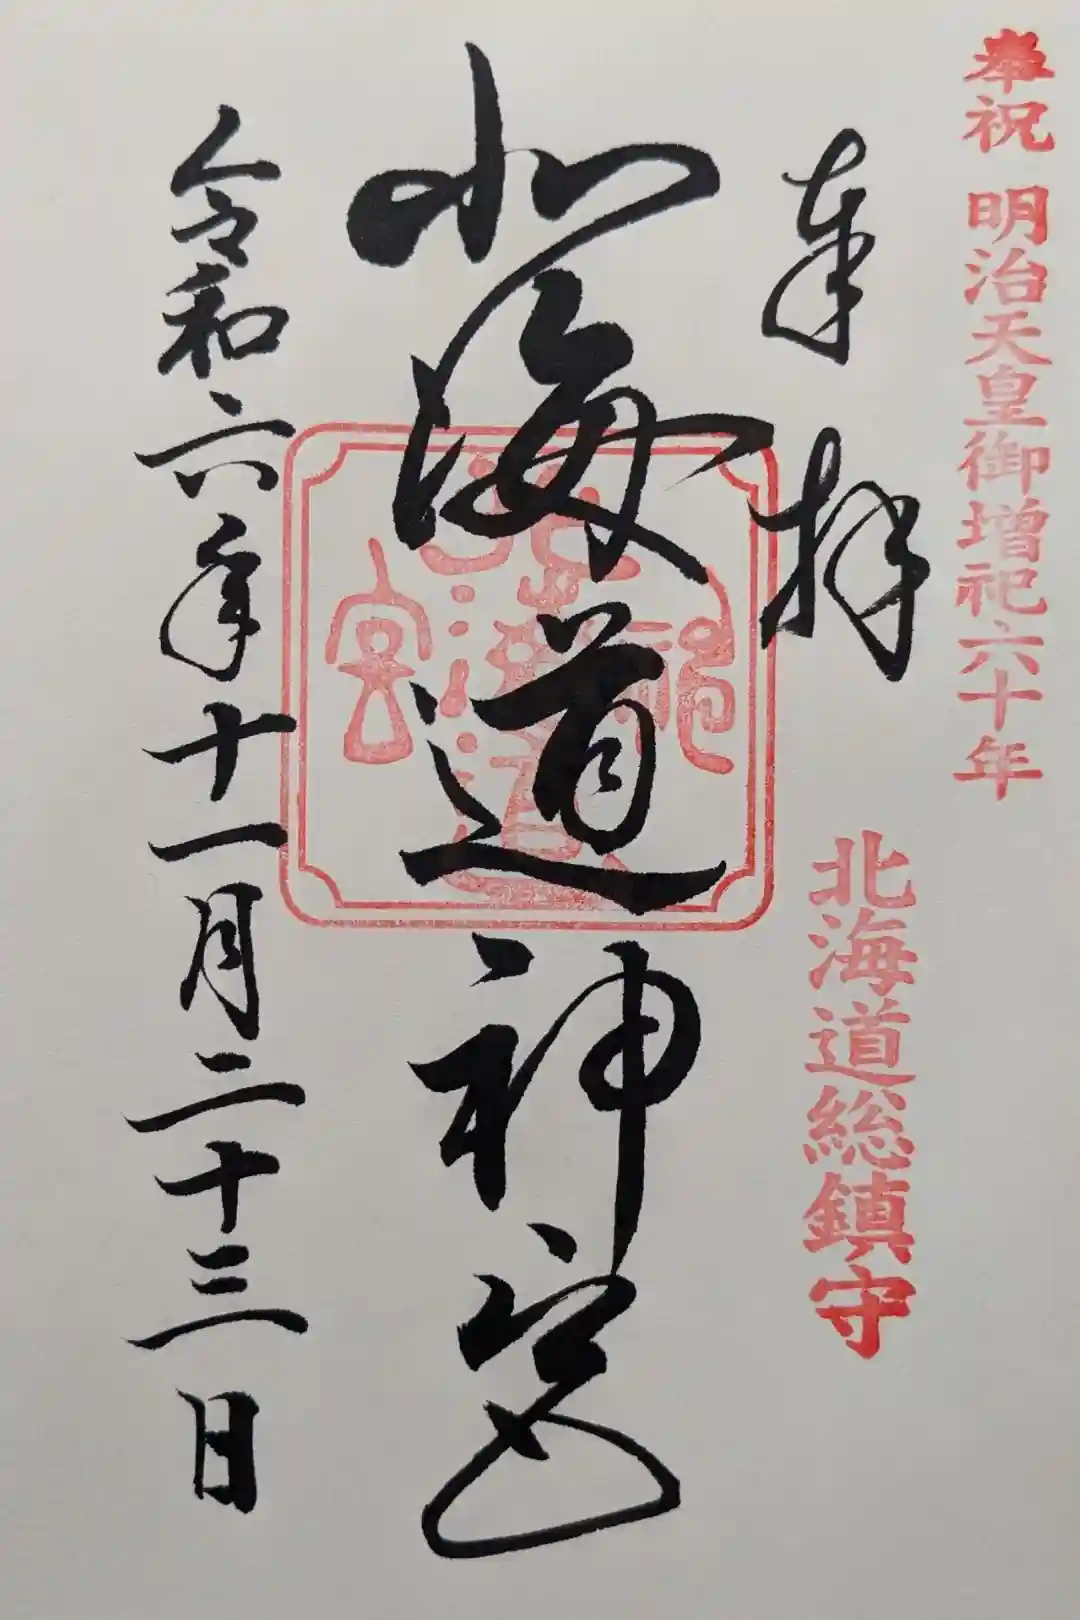 奉祝 明治天皇御増祀六十年
北海道総鎮守
奉拝
北海道神宮
北海道神宮
令和六年十一月二十三日